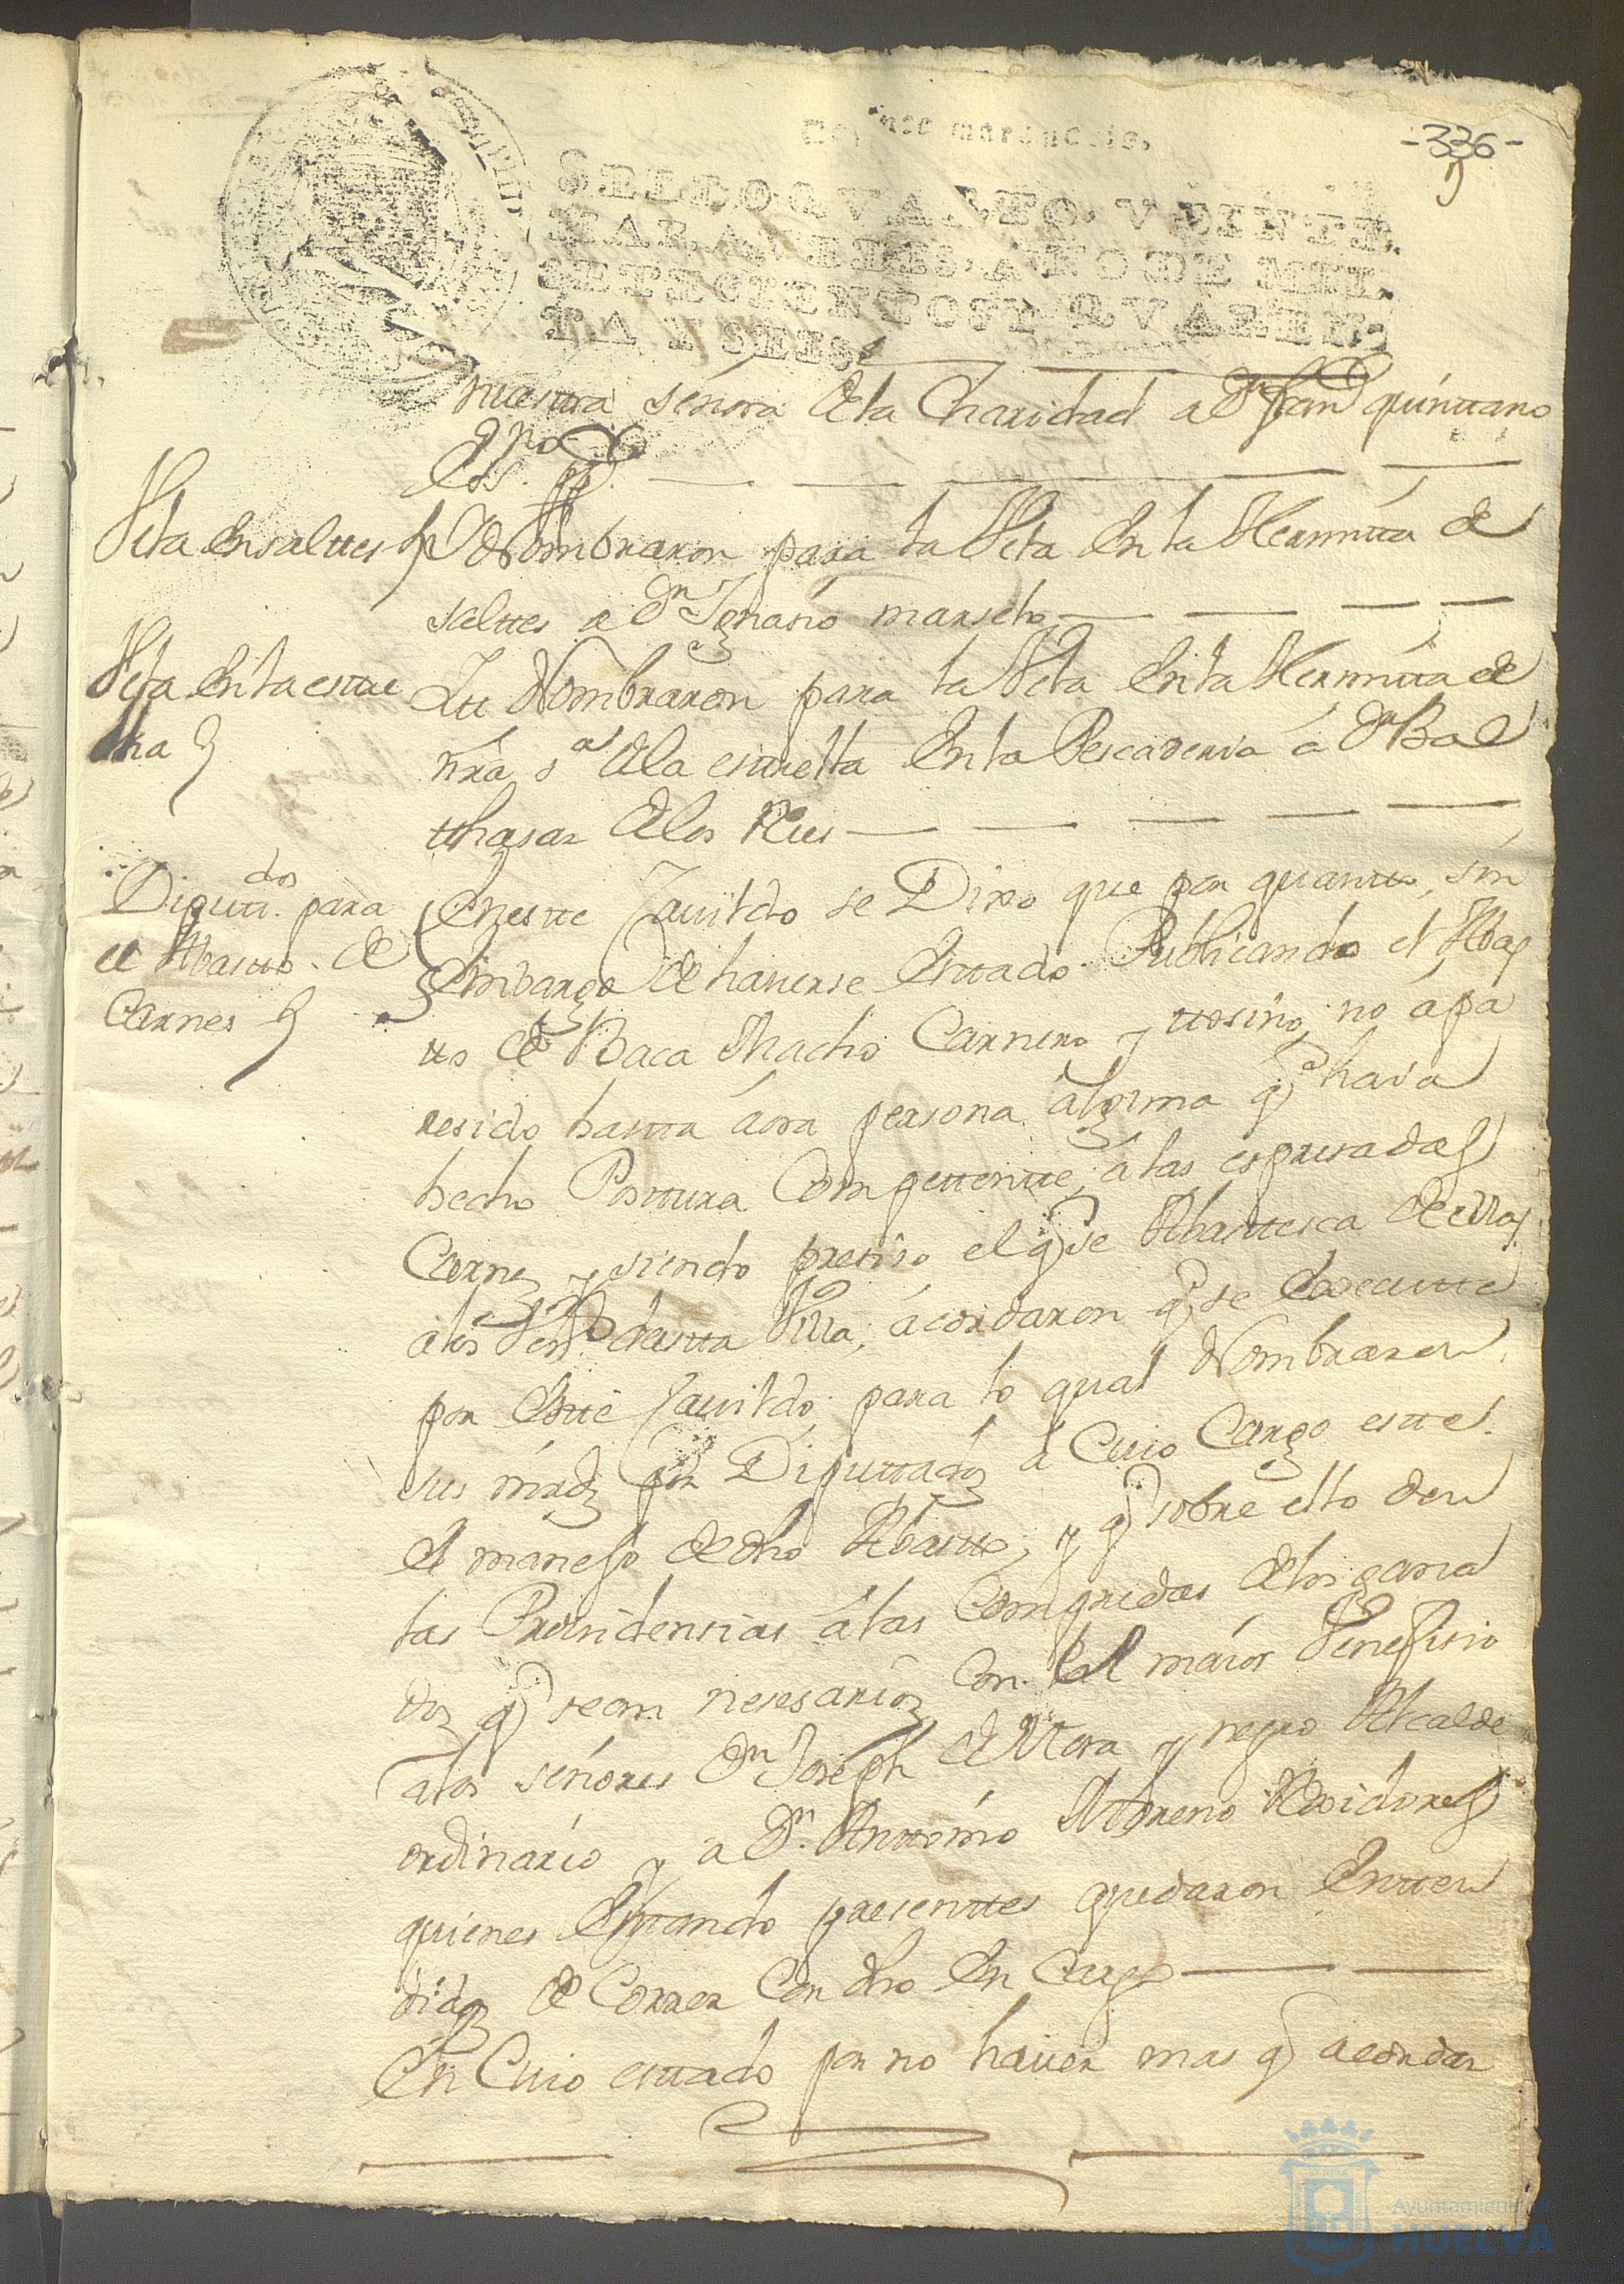 -336-
Veynte marauedis.
SELLO QVARTO, VEINTE
MARAVEDIS, AÑO DE MIL
SETECIENTOS Y QVAREN-
TA Y SEIS.
nuestra señora de la Charidad a Dn Franco quinttano
Vela en salttes
Yd Nombraron para la Vela en la Hermitta de
salttes a Dn Ignasio marselo
Vela en la esttre
lla
Itt Nombraron para la Vela en la Hermitta de
nra sa de la esttrella en la Pescaderia á Dn Bal
thasar de los Ries
Diputtdos para
el Abastto de
Carnes
En estte Cavildo se Dixo que por quantto, sin
embargo de haverse esttado Publicando el Abas
tto de Baca Macho Carnero y ttosino, no ápa
resido hastta áora persona alguna qe haia
hecho Posttura Compettentte, á las espresadas
Carnes y siendo presiso el qe se Abasttesca de ellas
a los Vesos de estta Villa, ácordaron qe se execautte
por estte Cavildo, para lo qual Nombraron
sus mrds por Diputtados á Cuio Cargo estte
el manejo de dho Abastto, y qe sobre ello den
las Providensias á las Compridas de los gana
dos qe sean nesesarios Con el maior Venefisio
a los señores Dn Joseph de Mora y negro Alcalde
ordinario y a Dn Anttonio Moreno Rexidores
quienes esttando presenttes quedaron Entten
didos de Correr Con dho En Cargo
En Cuio esttado por no haver mas qe acordar
Ayuntamiento de
HUELVA